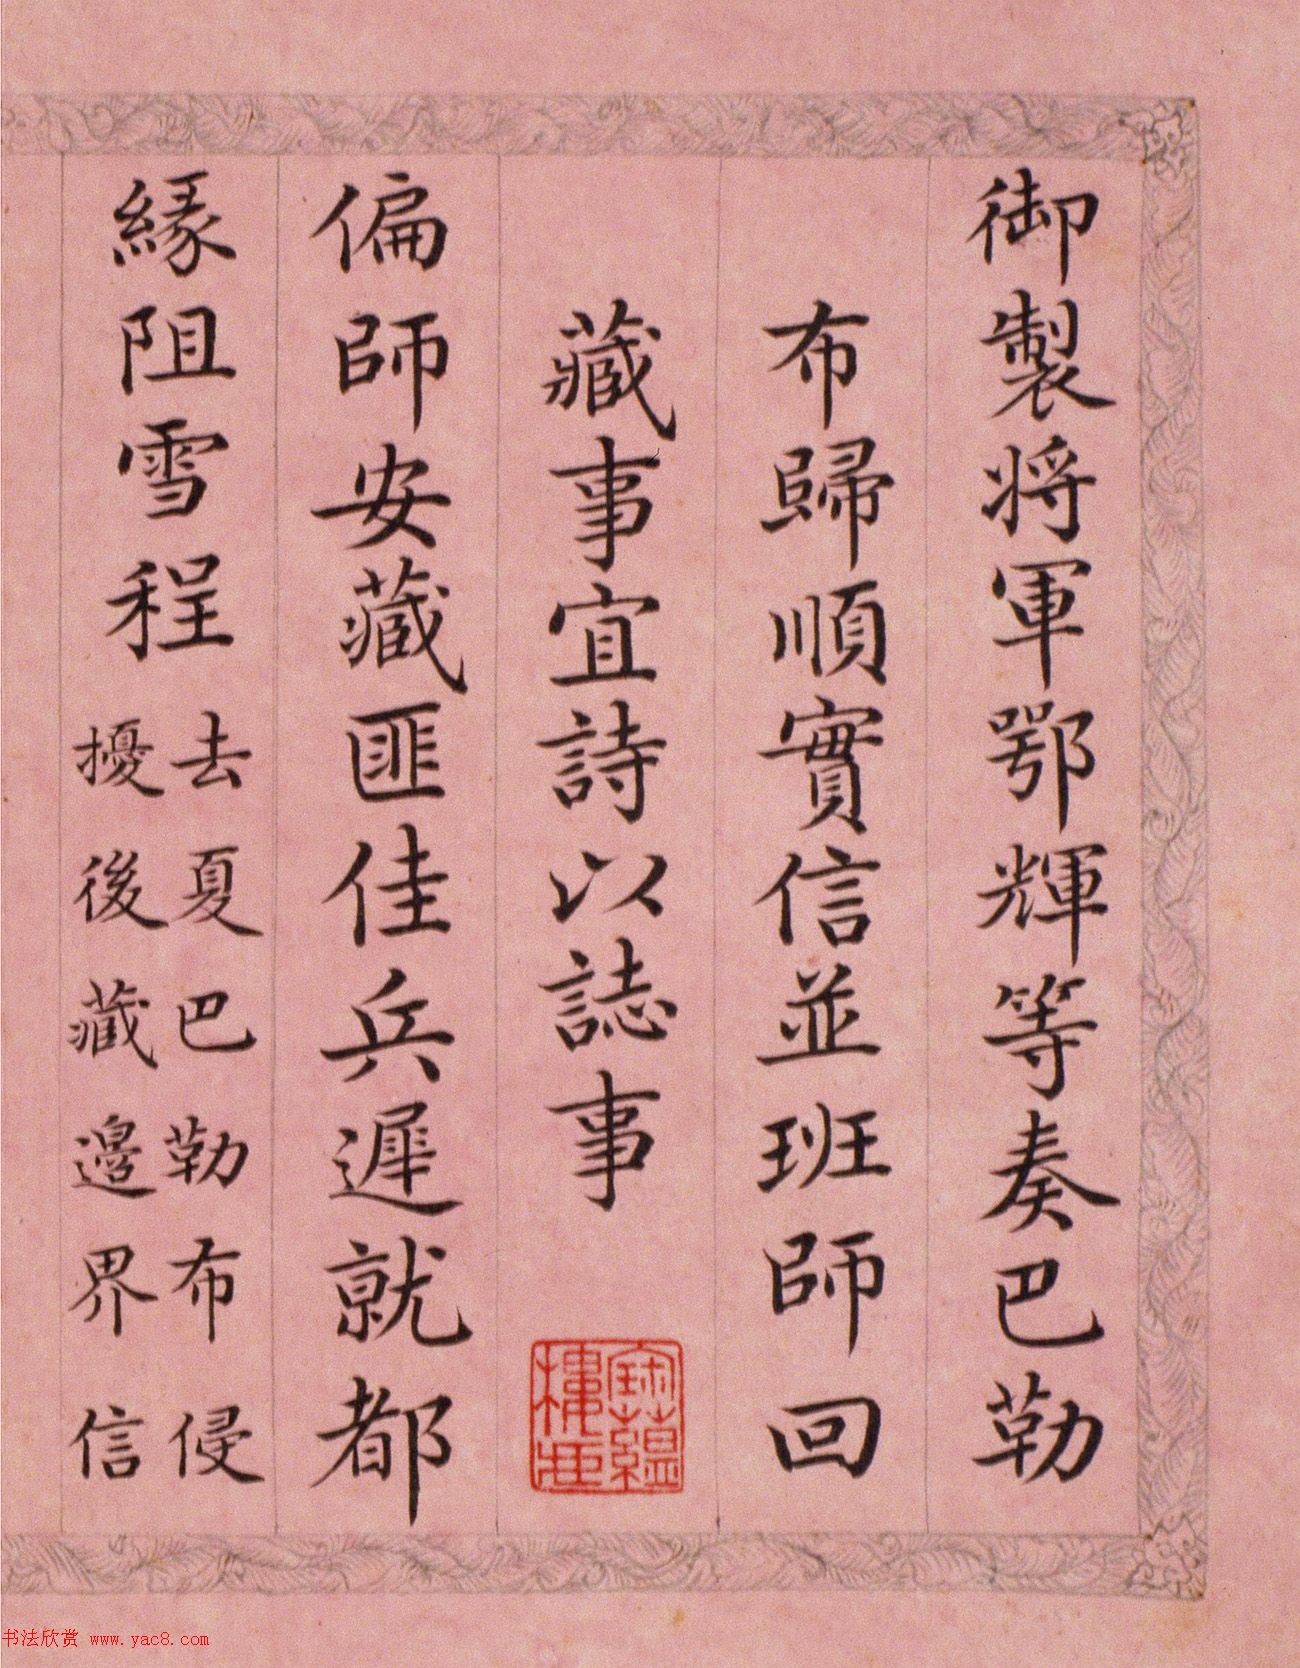 御製將軍鄂輝等奏巴勒
布歸順實信並班師回
藏事宜詩以誌事
寶蘊樓藏
偏師安藏匪佳兵遲就都
緣阻雪程
去夏巴勒布侵
擾後藏邊界信
书法欣赏 www.yac8.com